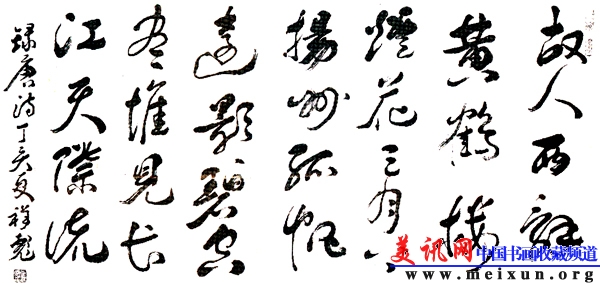 故人西辭
黄鶴楼
煙花三月下
揚州孤帆
遠影碧空
尽惟見长
江天際流
録唐诗丁亥夏祥
美讯网 中国书画收藏频道
www.meixun.org